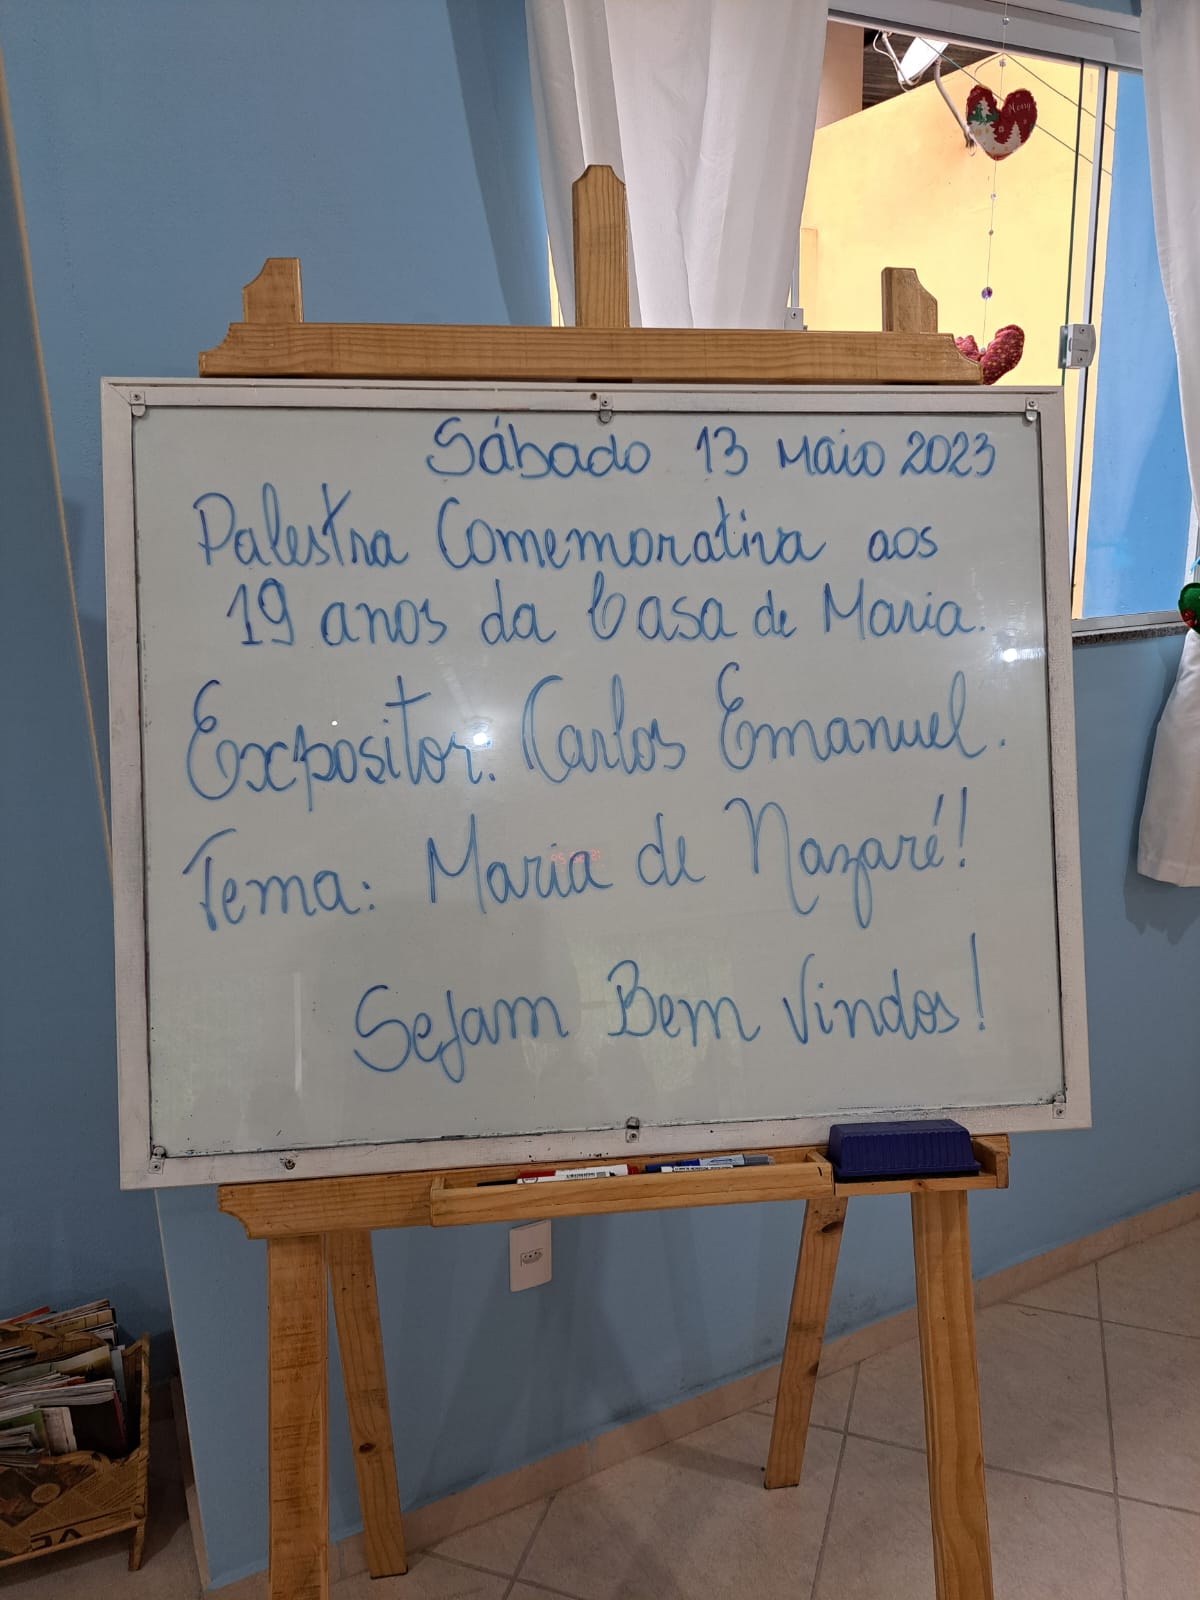 Merry
Sábado 13 Maio 2023
Palestra Comemorativa aos
19 anos da Casa de Maria.
Expositor: Carlos Emanuel.
Tema: Maria de Nazaré!
Sejam Bem Vindos!